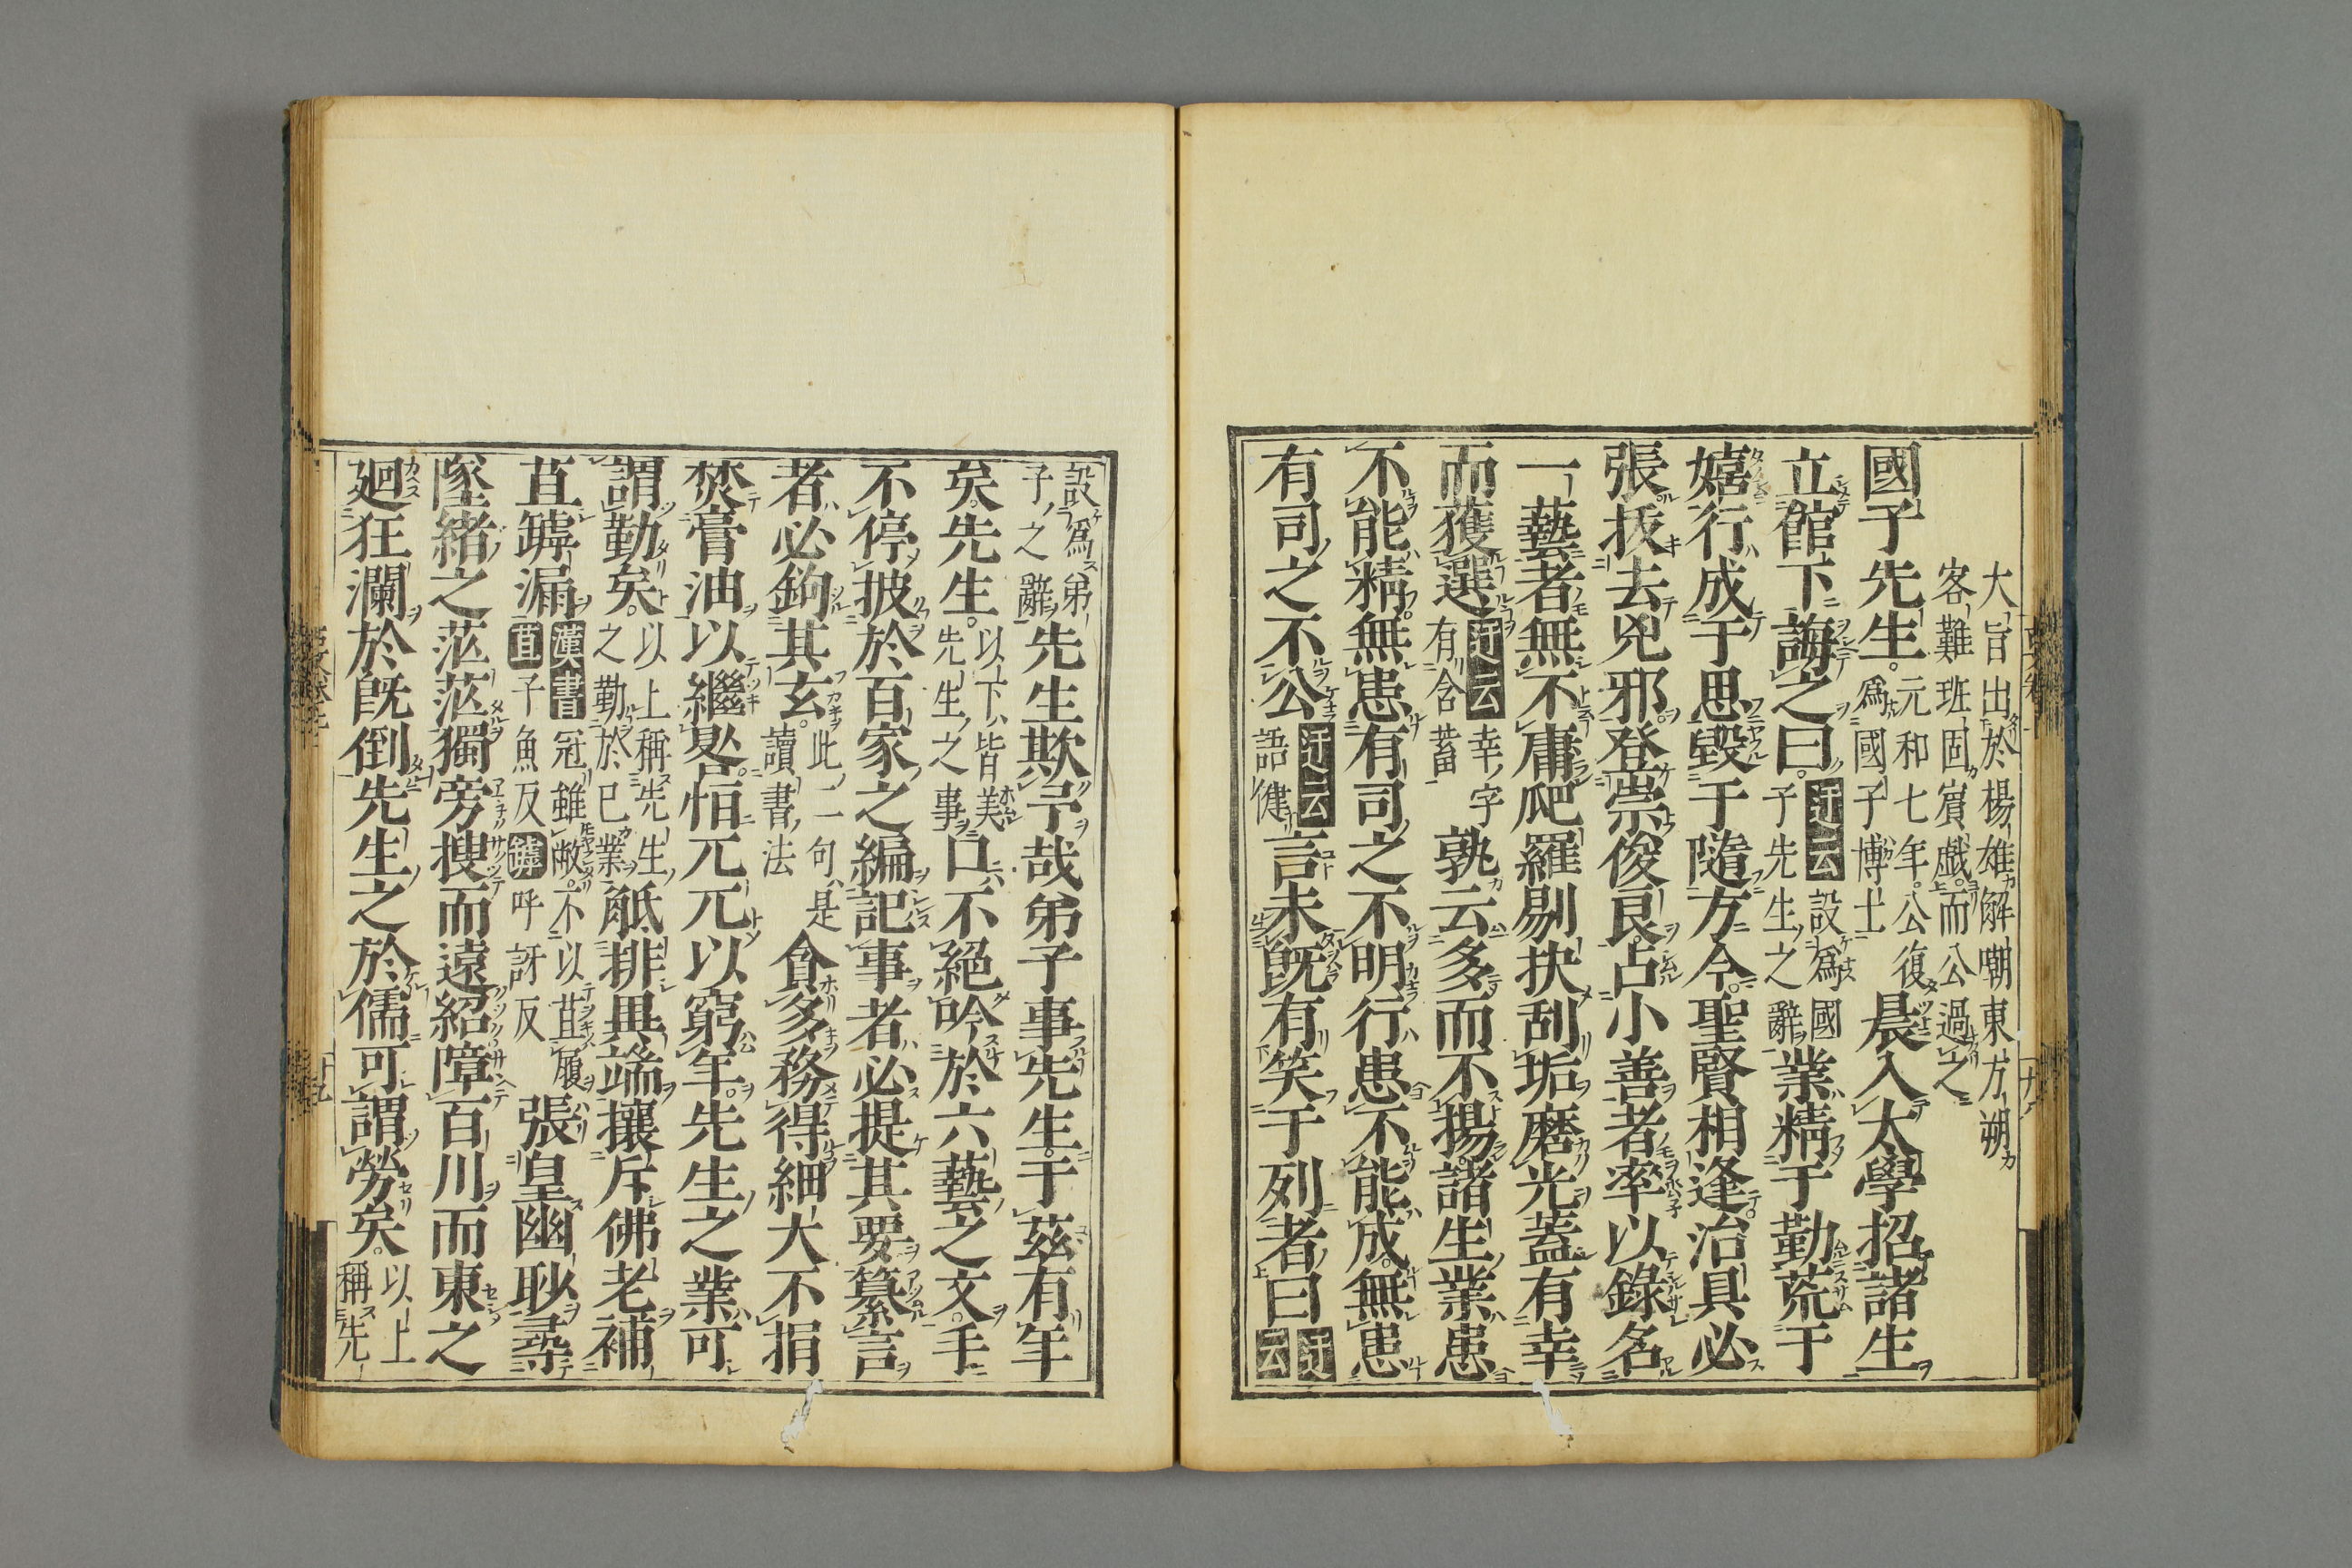 大旨出於楊雄解嘲東方朔
客難班固賓戲而公過之
國子先生。元和七年。公復為國子博士晨入太學招諸生
立館下誨之曰。迂云設為國子先生之辭業精于勤荒于
嬉行成于思毀于隨方今。聖賢相逢。治具必
張拔去兇邪。登崇俊良。占小善者率以錄名
一藝者無不庸爬羅剔抉刮垢磨光蓋有幸
而獲選迂云幸字有含蓄孰云多而不揚。諸生業患
不能精。無患有司之不明行患不能成。無患
有司之不公迂云語健言未既有笑于列者曰迂云
設為弟子之辭先生欺予哉弟子事先生。于茲有年
矣。先生。以下皆美先生之事口不絕吟於六藝之文。手
不停披於百家之編記事者必提其要纂言
者必鉤其玄。此二句是讀書法貪多務得細大不捐
焚膏油以繼晷。恒兀兀以窮年。先生之業可
謂勤矣。以上稱先生之勤於已業觝排異端攘斥佛老補
苴罅漏漢書冠雖敝。不以苴履苴子魚反罅呼訝反張皇幽眇尋
墜緒之茫茫獨旁搜而遠紹障百川而東之
廻狂瀾於既倒先生之於儒可謂勞矣。以上稱先